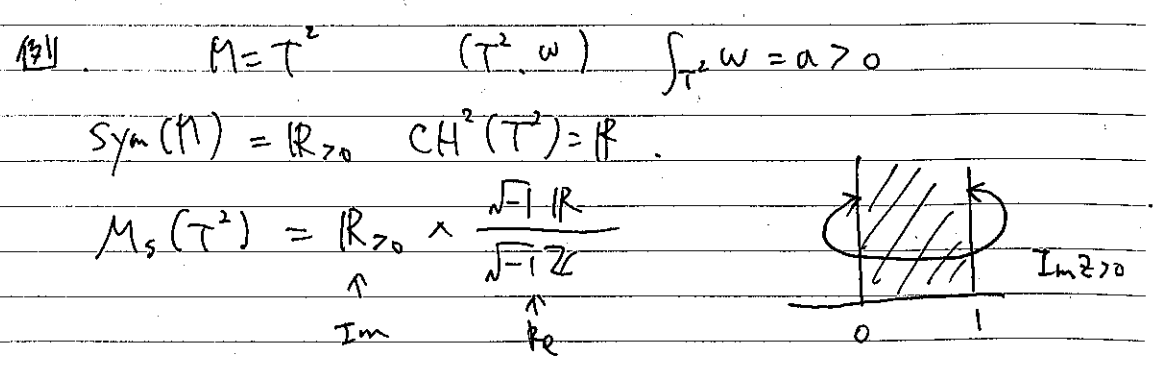 例. M = T² (T², ω) ∫_{T²} ω = a > 0
Sym(M) = ℝ_{>0} ⊂ H²(T²) = ℝ.
M_s(T²) = ℝ_{>0} × √-1 ℝ / √-1 ℤ
↑ ↑ Im z > 0
Im Re 0 1